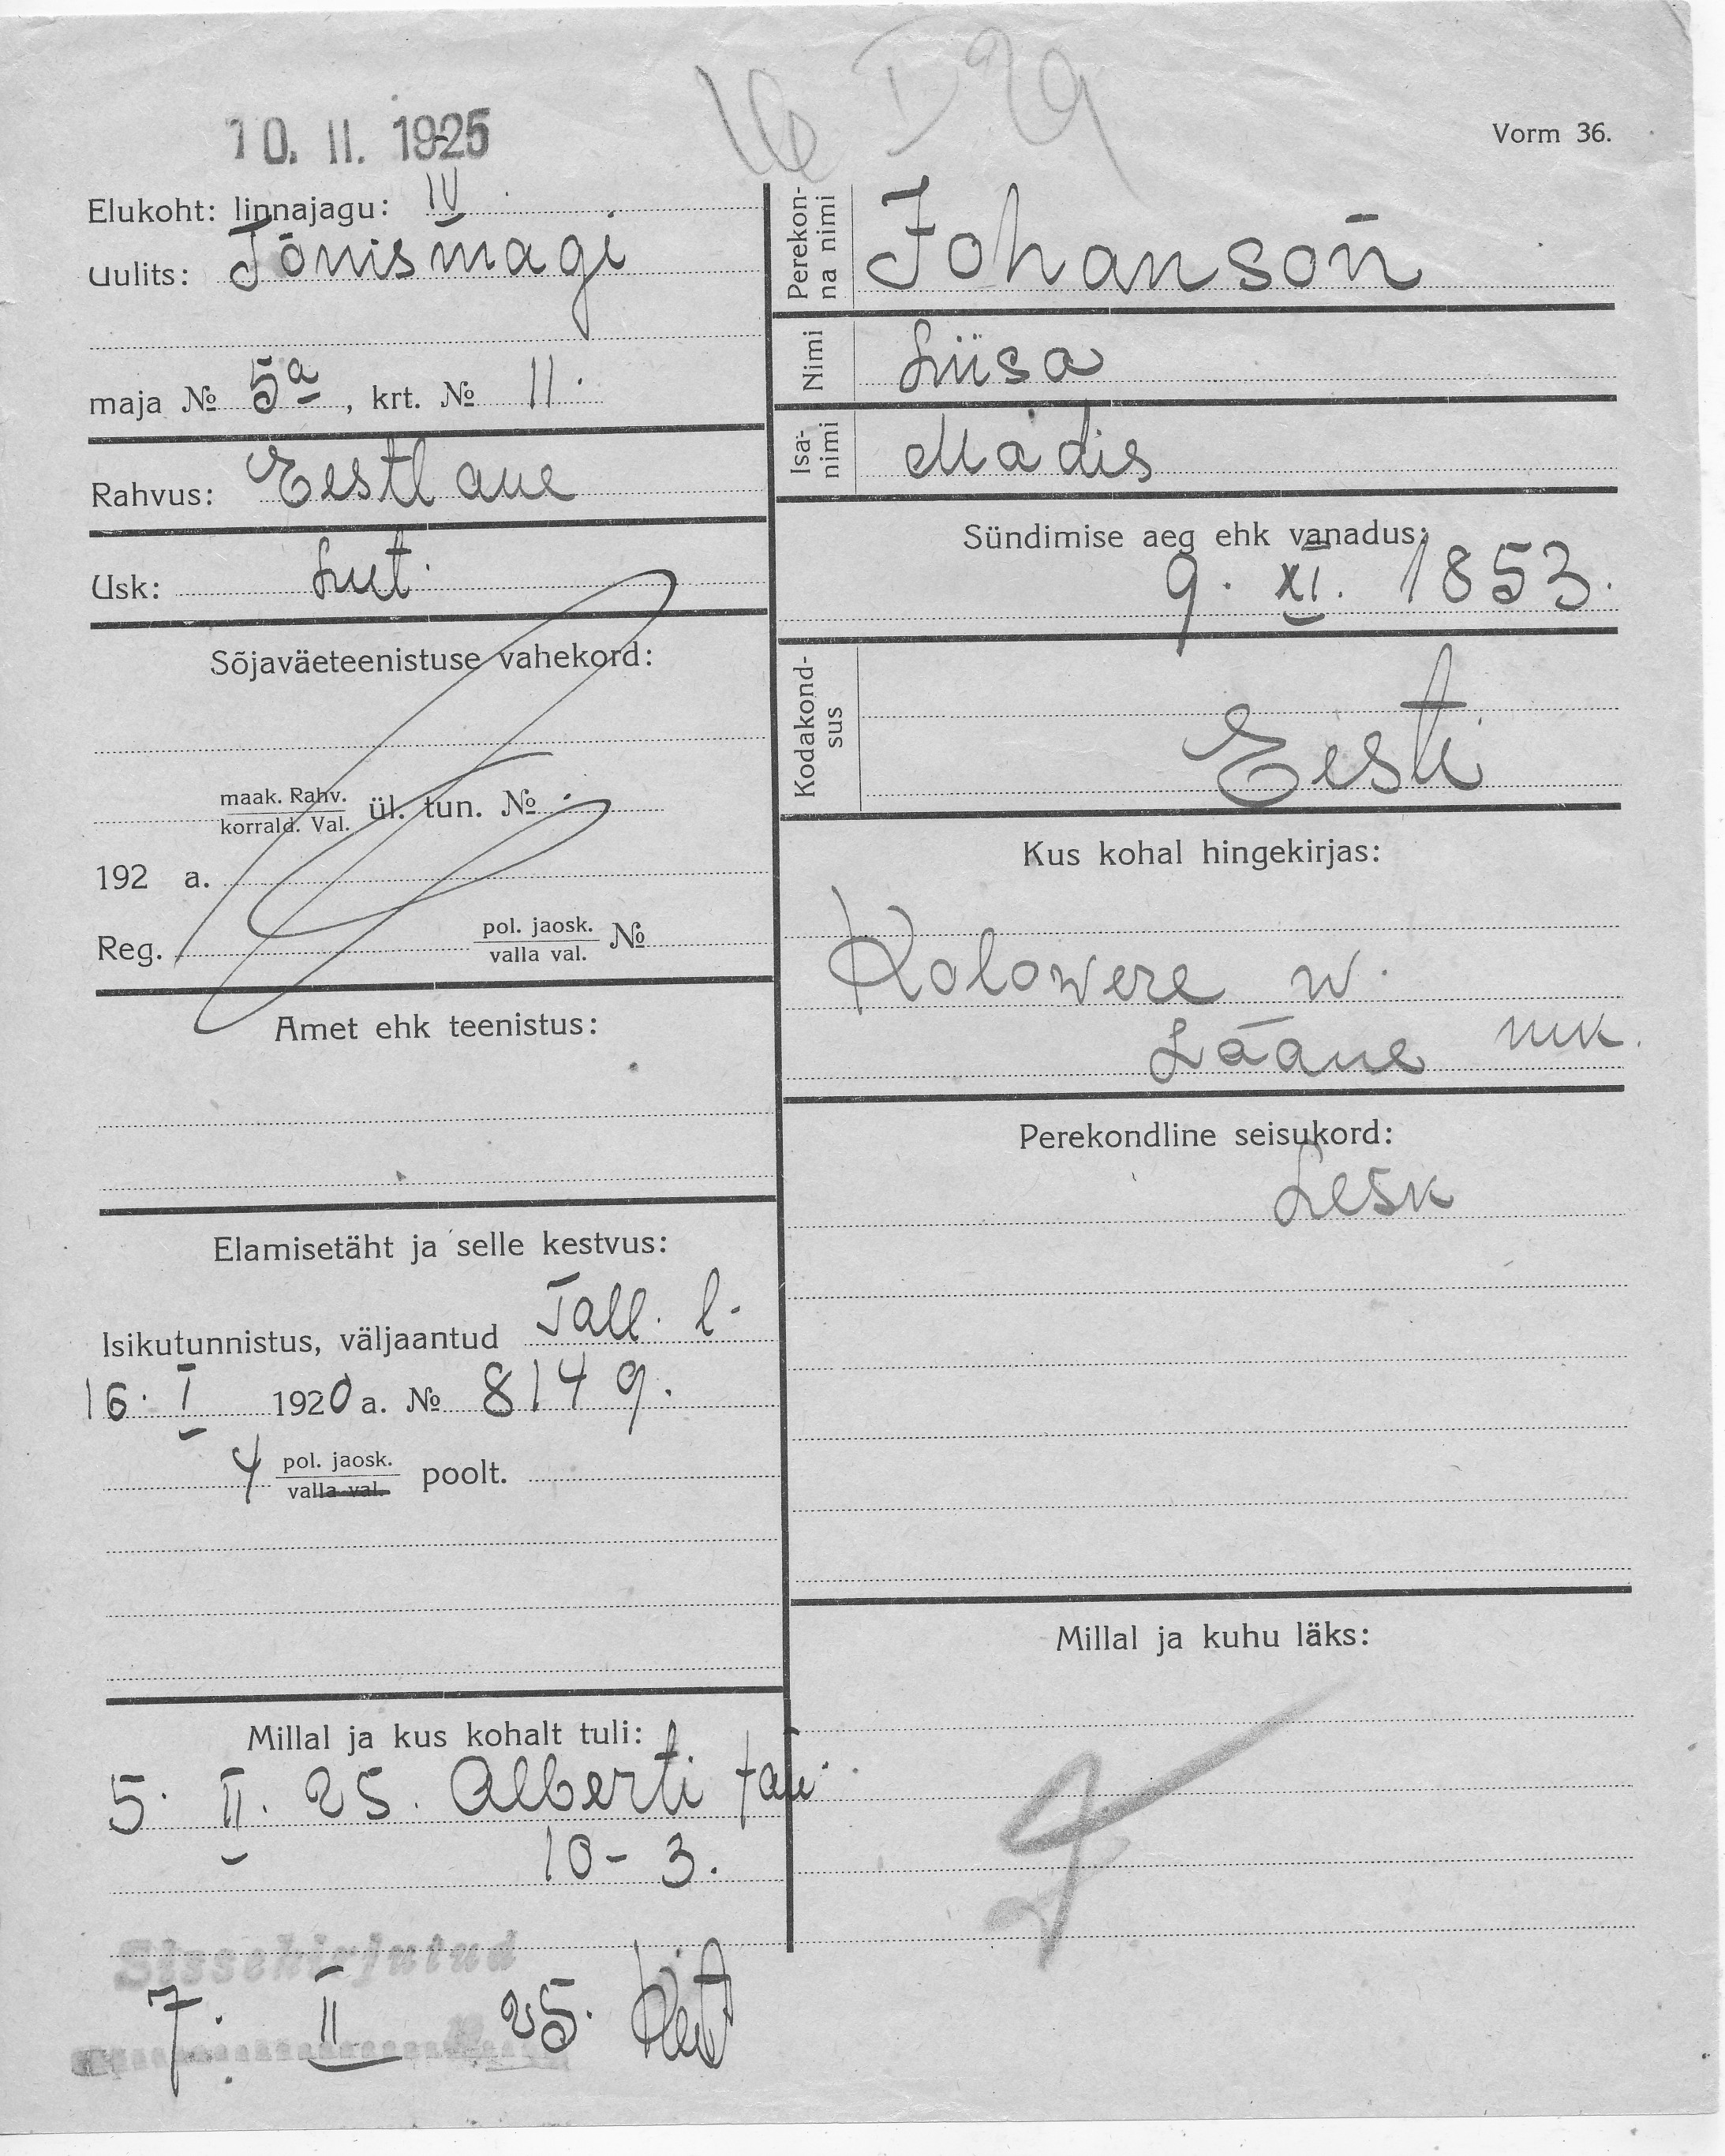 16 I 29
10. II. 1925
Vorm 36.
Elukoht: linnajagu: IV
Uulits: Tõnismägi
maja № 5a, krt. № 11.
Rahvus: Eestlane
Usk: Lut.
Sõjaväeteenistuse vahekord:
maak. Rahv.
korrald. Val. ül. tun. №
192 a.
Reg. pol. jaosk. №
valla val.
Amet ehk teenistus:
Elamisetäht ja selle kestvus:
Isikutunnistus, väljaantud Tall. l.
16. I 1920 a. № 8149.
4 pol. jaosk. poolt.
valla val.
Millal ja kus kohalt tuli:
5. II. 25. Alberti tän.
10-3.
Sissekirjutud
7. II 25.
Perekon-
na nimi Johanson
Nimi Liisa
Isa-
nimi Madis
Sündimise aeg ehk vanadus:
9. XI. 1853.
Kodakond-
sus Eesti
Kus kohal hingekirjas:
Kolowere w.
Lääne mk.
Perekondline seisukord:
Lesk
Millal ja kuhu läks: